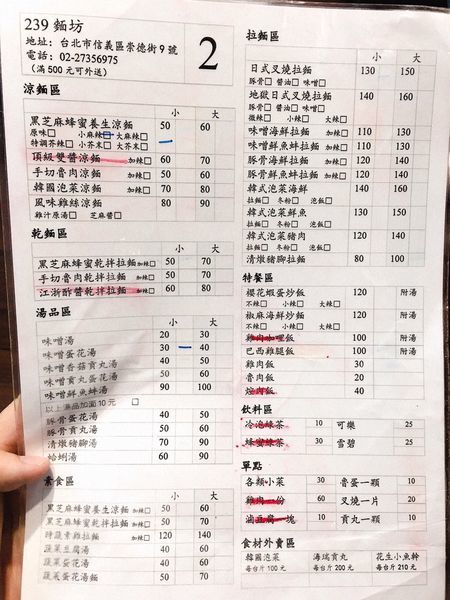 239 麵坊
地址：台北市信義區崇德街 9 號
電話：02-27356975
（滿 500 元可外送）
2
涼麵區
小 大
黑芝麻蜂蜜養生涼麵 50 60
原味□ 小麻辣□ 大麻辣□
特調芥辣□ 小芥末□ 大芥末□
頂級雙醬涼麵 加辣□ 60 70
手切魯肉涼麵 加辣□ 60 80
韓國泡菜涼麵 70 80
風味雞絲涼麵 80 90
雞汁原湯□ 芝麻醬□
乾麵區
小 大
黑芝麻蜂蜜乾拌拉麵 加辣□ 50 70
手切魯肉乾拌拉麵 加辣□ 50 70
江浙酢醬乾拌拉麵 加辣□ 60 80
湯品區
小 大
味噌湯 20 30
味噌蛋花湯 30 40
味噌香菇貢丸湯 50 70
味噌貢丸蛋花湯 50 70
味噌鮮魚蚌湯 90 100
以上湯品加麵 10 元 □
豚骨蛋花湯 40 50
豚骨貢丸湯 50 70
清燉豬腳湯 70 90
蛤蜊湯 60 90
素食區
小 大
黑芝麻蜂蜜養生涼麵 加辣□ 50 60
黑芝麻蜂蜜乾拌拉麵 加辣□ 50 70
時蔬素雞拉麵 加辣□ 120 140
蔬菜豆腐湯 40 50
蔬菜蛋花湯 40 50
蔬菜蛋花湯麵 50 60
拉麵區
小 大
日式叉燒拉麵 130 150
豚骨□ 醬油□ 味噌□
地獄日式叉燒拉麵 140 160
豚骨□ 醬油□ 味噌□
微辣□ 小辣□ 大辣□
味噌海鮮拉麵 加辣□ 110 130
味噌鮮魚蚌拉麵 加辣□ 110 130
豚骨海鮮拉麵 加辣□ 120 140
豚骨鮮魚蚌拉麵 加辣□ 120 140
韓式泡菜海鮮 140 160
拉麵□ 冬粉□ 泡飯□
韓式泡菜鮮魚 130 150
拉麵□ 冬粉□ 泡飯□
韓式泡菜豬肉 120 140
拉麵□ 冬粉□ 泡飯□
清燉豬腳拉麵 80 100
特餐區
櫻花蝦蛋炒飯 120 附湯
不辣□ 小辣□ 大辣□
椒麻海鮮炒飯 120 附湯
不辣□ 小辣□ 大辣□
雞肉咖哩飯 100 附湯
巴西雞腿飯 100 附湯
雞肉飯 30
魯肉飯 20
焢肉飯 40
飲料區
冷泡綠茶 30 可樂 25
蜂蜜綠茶 30 雪碧 25
單點
各類小菜 30 魯蛋一顆 10
雞肉一份 60 叉燒一片 20
滷豆腐一塊 10 貢丸一顆 10
食材外賣區
韓國泡菜 海瑞貢丸 花生小魚幹
每台斤 100 元 每台斤 200 元 每台斤 210 元